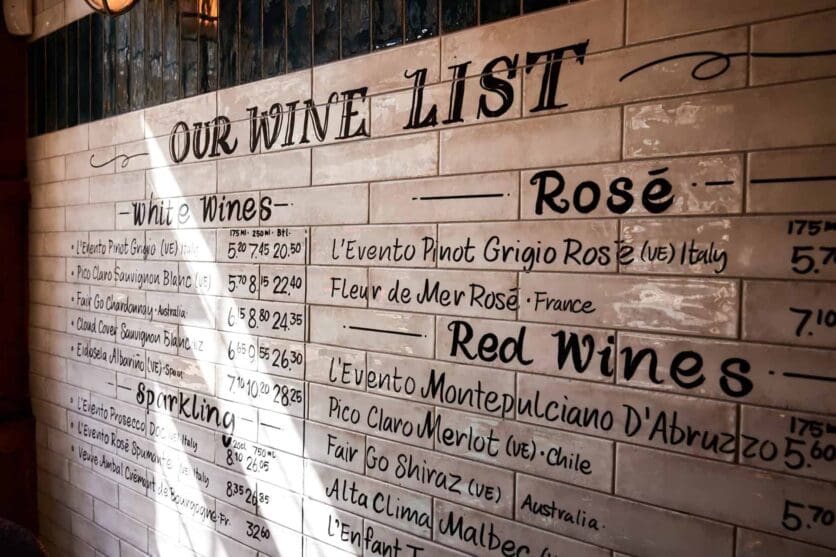 OUR WINE LIST
White Wines
175ml · 250ml · Btl.
• L'Evento Pinot Grigio (VE) Italy 5.20 7.45 20.50
• Pico Claro Sauvignon Blanc (VE) 5.70 8.15 22.40
• Fair Go Chardonnay · Australia 6.15 8.80 24.35
• Cloud Cover Sauvignon Blanc NZ 6.65 9.55 26.30
• Eidosela Albariño (VE) · Spain 7.10 10.20 28.25
Sparkling
20cl 750ml
• L'Evento Prosecco DOC (VE) Italy 8.10 26.05
• L'Evento Rosé Spumante (VE) Italy 8.35 26.85
• Veuve Ambal Crémant de Bourgogne · Fr. 32.60
Rosé
175ml
L'Evento Pinot Grigio Rosé (VE) Italy 5.7
Fleur de Mer Rosé · France 7.10
Red Wines
175ml
L'Evento Montepulciano D'Abruzzo 5.60
Pico Claro Merlot (VE) · Chile 5.70
Fair Go Shiraz (VE) Australia.
Alta Clima Malbec (VE)
L'Enfant